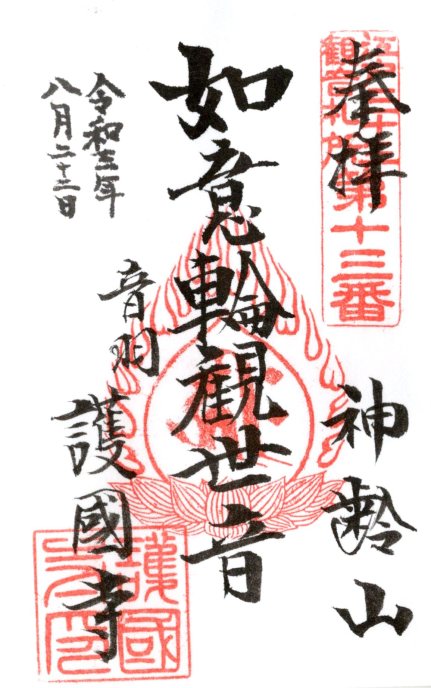 奉拝
江戸三十三観音札所第十三番
神齢山
如意輪観世音
音羽
護國寺
令和三年
八月二十二日
護國寺印